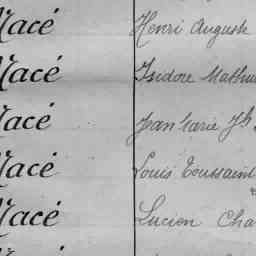 Macé Henri Auguste
Macé Isidore Mathu
Macé Jean Marie Jh
Macé Louis Toussaint
Macé Lucien Cha